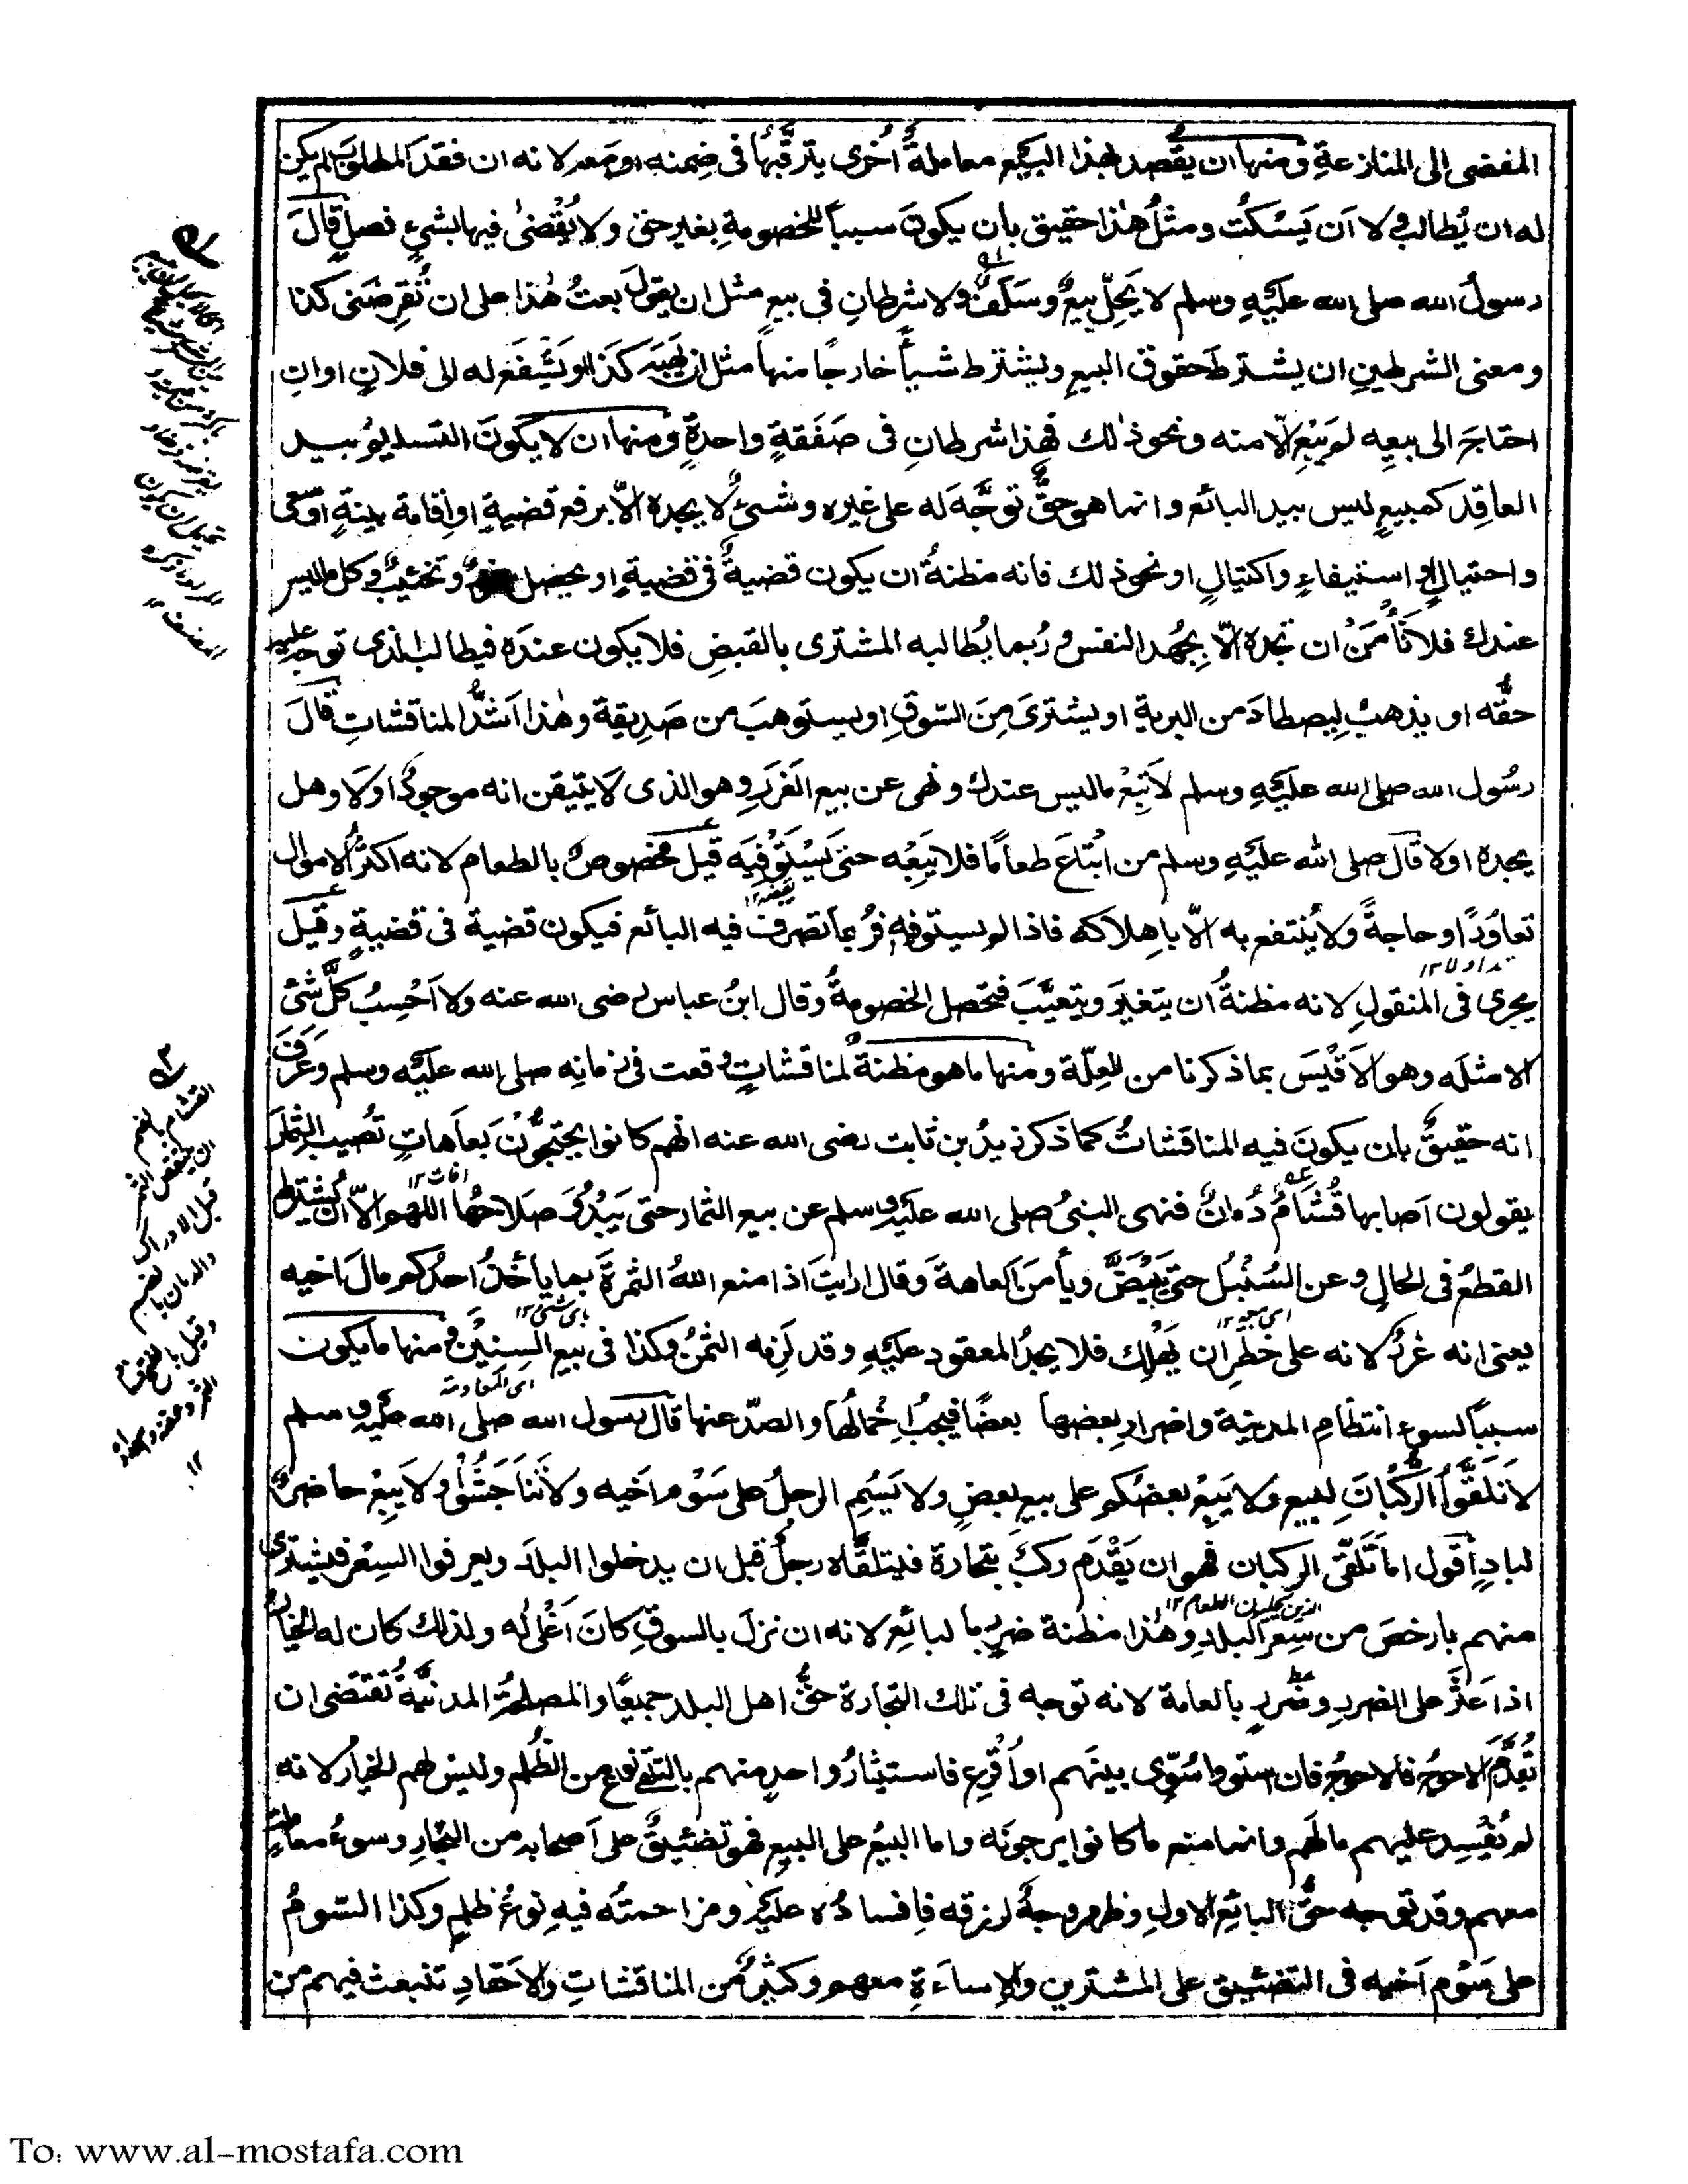 المفضى الى المنازعةِ ومنها ان يقصد بهذا البيع معاملةً اُخرى يترقّبها فى ضِمنه او معه لانه ان فقد المطلوب لم يكن
له ان يُطالب ولا اَن يَسْكُت ومثلُ هٰذا حقيق بان يكونَ سبباً للخصومةِ بغير حق ولا يُقْضىٰ فيها بشىءٍ فصلٍ قالَ
رسولُ الله صلى الله عليهِ وسلم لا يَحِلّ بيعٌ وسَلَفٌ ولا شرطانِ فى بيعٍ مثل ان يقولَ بعتُ هٰذا على ان تُقرِضَنى كذا
ومعنى الشرطينِ ان يشترطَ حقوق البيعِ ويشترط شيأً خارجًا منها مثل ان يَهَبَه كَذا او يَشْفَعَ له الى فلانٍ او انِ
احتاجَ الى بيعِه لم يَبِعْ الّا منه ونحو ذٰلك فهذا شرطانِ فى صَفَقةٍ واحدةٍ ومنها ان لا يكونَ التسليمُ بيد
العاقِدِ كمبيعٍ ليس بيد البائع وانما هو حقٌّ توجَّهَ له على غيره وشىءٌ لا يجده الّا برفع قضيةٍ او اِقامة بينةٍ او سَعى
واحتيالٍ او استيفاءٍ واكتيالٍ او نحو ذلك فانه مظنةُ ان يكون قضيةٌ فى قضيةٍ او يحصل غررٌ وتخييبٌ وكل ماليس
عندك فلا تأمَنُ ان تجده الّا بِجُهد النفس ورُبما يُطالبه المشترى بالقبضِ فلا يكون عندَه فيطالب الذى توجه عليه
حقُّه او يذهبُ لِيصطادَ من البرية او يشترىَ مِنَ السّوقِ او يستوهبَ من صَدِيقة وهٰذا اَشدُّ المناقشاتِ قالَ
رسُول الله صلى الله عليهِ وسلم لَا تَبِعْ ماليس عندك ونهى عن بيع الغَرَرِ وهو الذى لَا يتيقن انه موجودٌ اولَا وهل
يجده اولا قالَ صلى الله عليهِ وسلم من ابْتاعَ طعاماً فلا يَبِعْه حتى يَسْتَوْفِيَه قيلَ مخصوصٌ بالطعام لانه اكثرُ الاموال
تعاوُرًا وحاجةً ولا يُنتفع به الّا باِهلاكه فاذا لم يستوفِهِ فرُبما تصرف فيه البائع فيكون قضية فى قضيةٍ وقيلَ
يجرى فى المنقولِ لانه مظنةُ ان يتغيرَ ويتعيَّبَ فتحصل الخصومةُ وقال ابنُ عباس رضى الله عنه ولا اَحْسِبُ كلَّ شىءٍ
الا مثلَه وهو الاَقْيَسُ بما ذكرنا من العِلّة ومنها ما هو مظنةٌ لمناقشاتٍ وقعت فى زمانِه صلى الله عليه وسلم وعَرَفَ
انه حقيقٌ بان يكونَ فيه المناقشاتُ كما ذكر زيدُ بن ثابت رضى الله عنه انهم كانوا يحتجُّونَ بعاهاتٍ تُصيب الثمارَ
يقولون اَصابها قُشَامٌ دُمانٌ فنهى النبىُّ صلى الله عليه وسلم عن بيع الثمار حتى يَبْدُوَ صَلاحُها اللهم الّا ان يشترط
القطعُ فى الحالِ وعن السُنْبُل حتى يَبْيَضَّ ويأمنَ العاهةَ وقال ارايتَ اذا منع اللهُ الثمرةَ بما يأخذُ احدُكم مالَ اخيه
يعنى انه غررٌ لانه على خطرِ ان يَهْلِكَ فلا يجدُ المعقود عليهِ وقد لَزِمه الثمنُ وكذا فى بيع السِنِيْنَ ومنها ما يكون
سبباً لسوءِ انتظامِ المدينة واضرارِ بعضها بعضًا فيجبُ اِخْمالُها والصدّ عنها قال رسول الله صلى الله عليه وسلم
لا تَلَقَّوُا الركْبَانَ لبيعٍ ولا يَبِعْ بعضُكم على بيع بعضٍ ولا يَسُمِ الرجلُ على سَوْمِ اَخيه ولا تَنَاجَشُوْا ولا يَبِعْ حاضرٌ
لبادٍ اَقول اما تَلَقّى الركبان فهو ان يَقْدَم ركبٌ بتجارة فيتلقّاه رجلٌ قبل ان يدخلوا البلدَ ويعرفوا السِعْر فيشترى
منهم بارخصَ من سِعرِ البلدِ وهٰذا مظنة ضررٍ بالبائِعِ لانه ان نزلَ بالسوقِ كانَ اَغْلىٰ له ولذلك كان له الخيارُ
اذا عَثَرَ على الضررِ وضررٍ بالعامة لانه توجه فى تلك التجارة حقُّ اهل البلد جميعًا والمصلحةُ المدنيَّةُ تقتضى ان
تُقَدَّمَ الاحوجُ فالاحوجُ فان استووا سُوِّى بينَهم او اُقرِع فاستيثارُ واحدٍ منهم بالتلقّى نوعٌ من الظُلم وليس لهم الخيارُ لانه
لم يُفْسِد عليهم مالَهم وانما منع ما كانوا يرجونَه واما البيعُ على البيعِ فهو تضييقٌ على اَصحابه من التجارِ وسوءُ معاملةٍ
معهم وقد توجه حقُّ البائِع الاولِ وظهر وجهٌ لرزقه فاِفسادُه عليه ومزاحمتُه فيهِ نوعُ ظلمٍ وكذا السّومُ
على سَوْمِ اَخيه فى التضييقِ على المشترين والاِساءَةِ معهم وكثيرٌ من المناقشاتِ والاَحقادِ تنبعث فيهم من
القشام بالضم
ان ينتفض الثمر
قبل الادراك
والدمان بالضم
To: www.al-mostafa.com